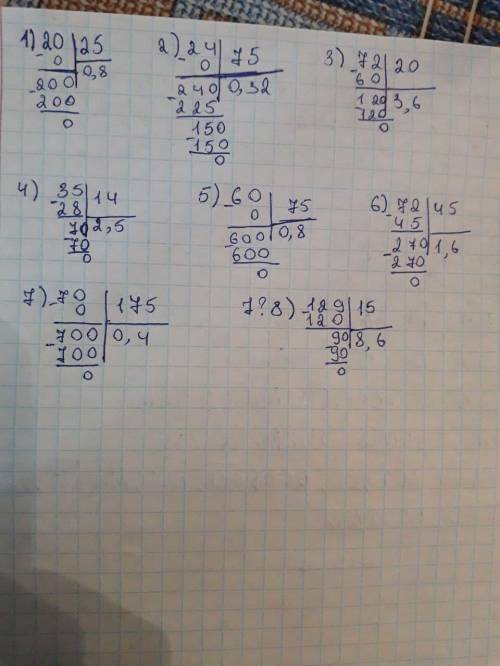 1) 20 | 25
- 0 | 0,8
- 200
200
0
2) - 24 | 75
0 | 0,32
- 240
225
- 150
150
0
3) - 72 | 20
60 | 3,6
- 120
120
0
4) - 35 | 14
28 | 2,5
- 70
70
0
5) - 60 | 75
0 | 0,8
- 600
600
0
6) - 72 | 45
45 | 1,6
- 270
270
0
7) - 70 | 175
0 | 0,4
- 700
700
0
7?8) - 129 | 15
120 | 8,6
- 90
90
0